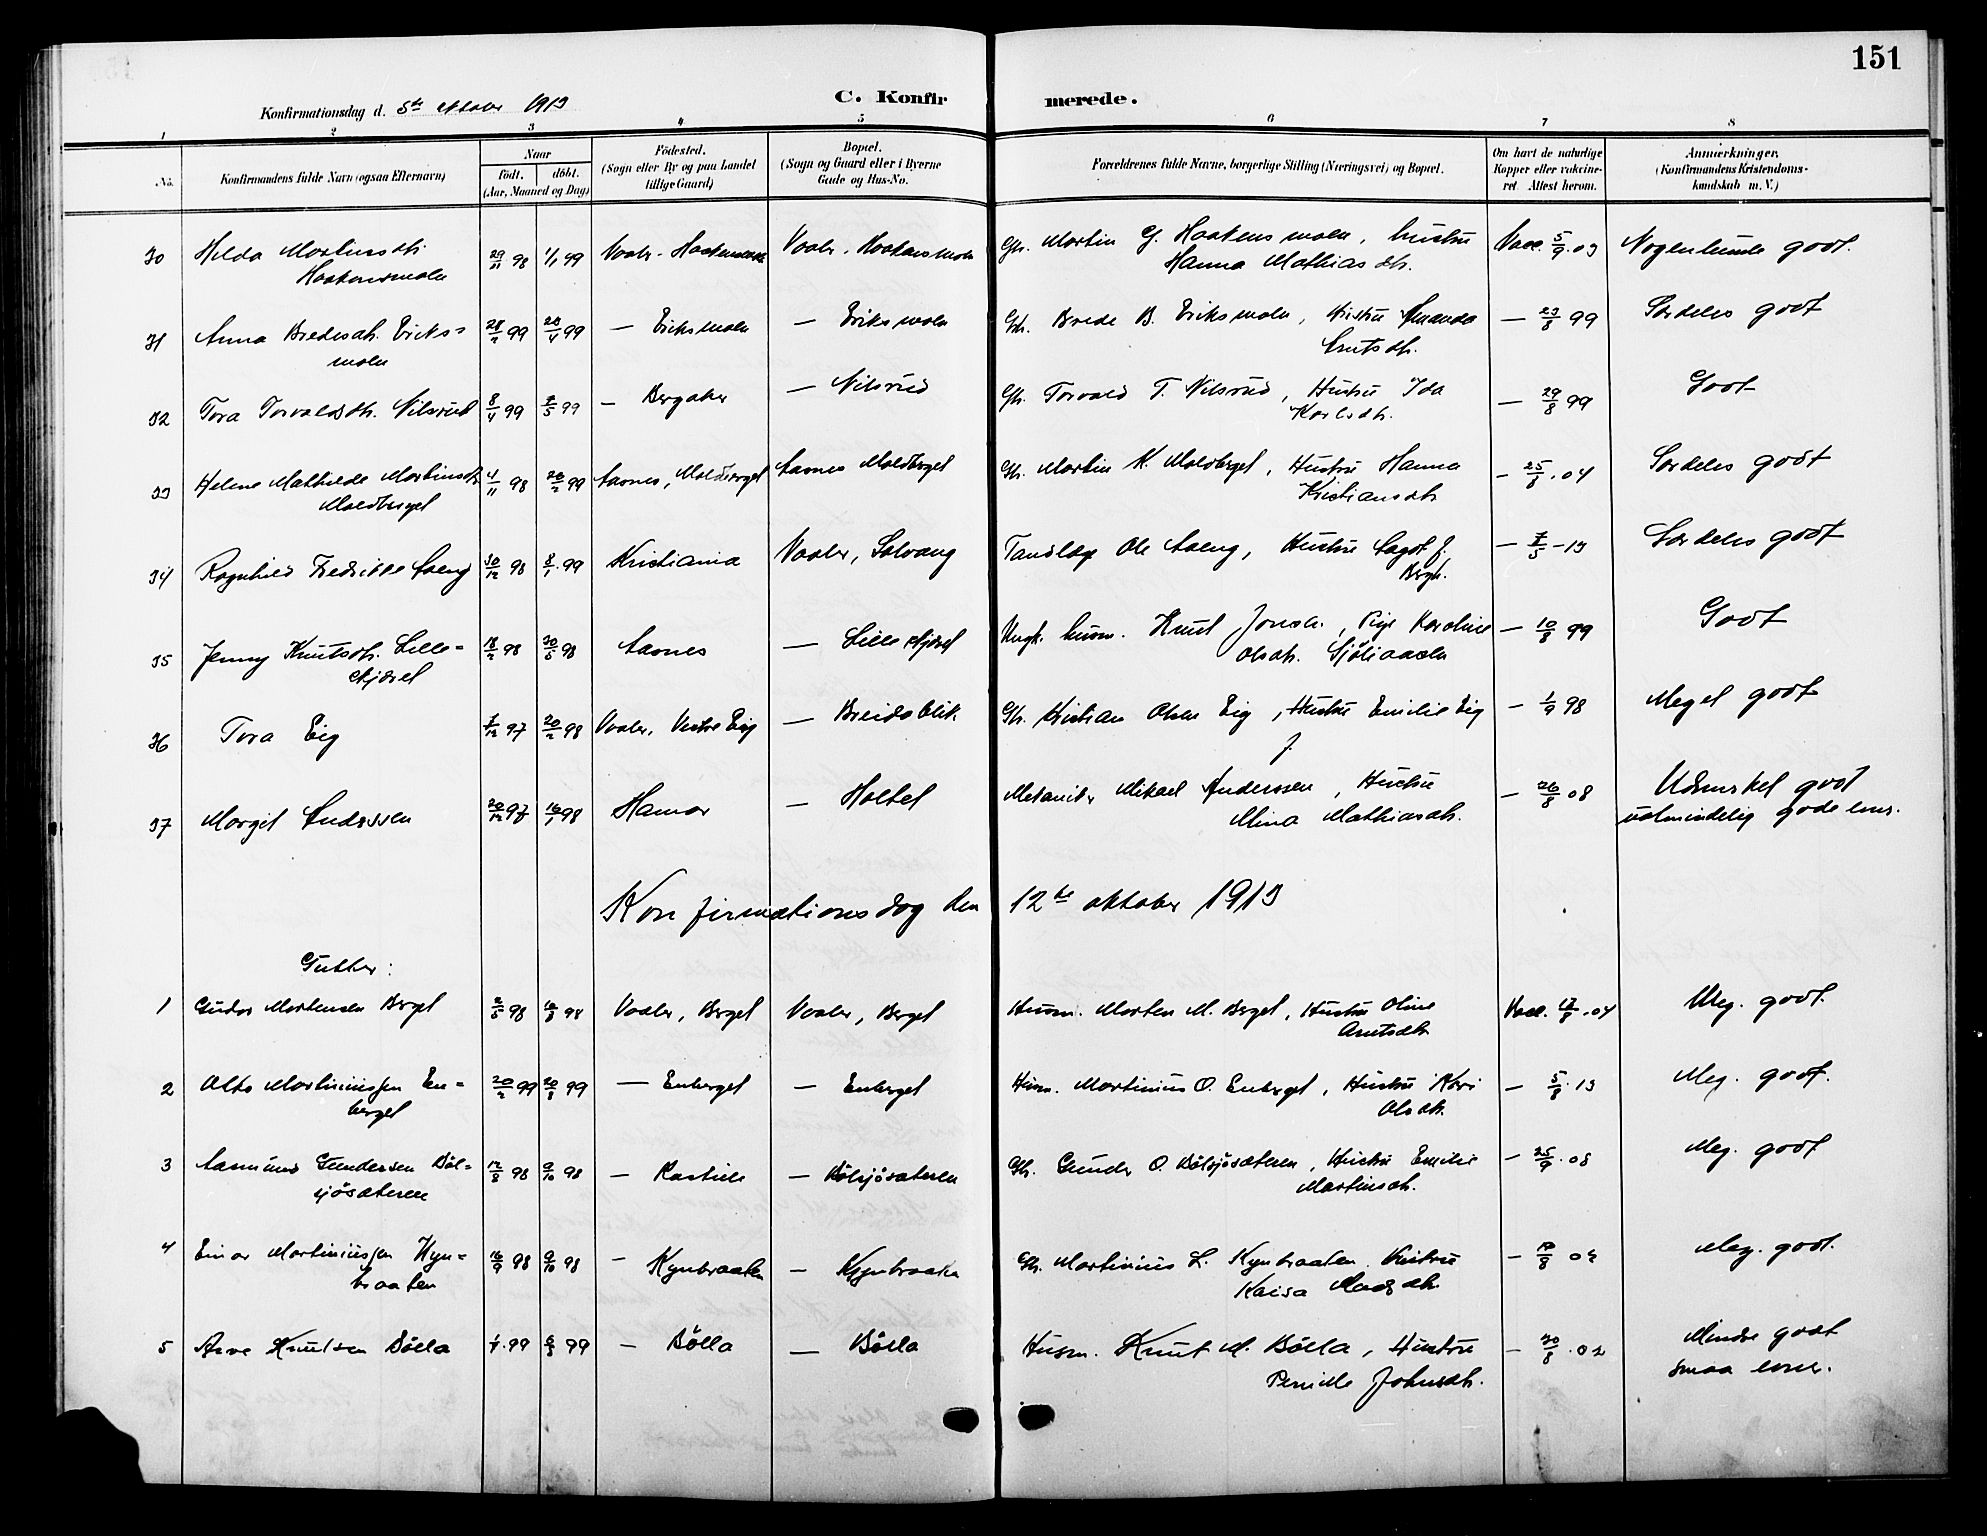 151
Konfirmationsdag d. 5te oktober 1913
C. Konfirmerede.
1 2 3 4 5 6 7 8
No. Konfirmandens fulde Navn (ogsaa Efternavn) Naar født. døbt. (Aar, Maaned og Dag) Fødested. (Sogn eller By og paa Landet tillige Gaard) Bopæl. (Sogn og Gaard eller i Byerne Gade og Hus-No. Forældrenes fulde Navne, borgerlige Stilling (Næringsvei) og Bopæl. Om havt de naturlige Kopper eller vakcineret Attest herom. Anmærkninger. (Konfirmandens Kristendomskundskab m. V.)
30 Hilda Martinsdtr. Haakensmoen 29/11 98 1/1 99 Vaaler. Haakensmoen Vaaler. Haakensmoen Gbr. Martin G. Haakensmoen, hustru Hanna Mathiasdtr. Vacc. 5/9.03 Nogenlunde godt.
31 Anna Bredesdtr. Eriksmoen 28/2 99 20/4 99 — Eriksmoen — Eriksmoen Gbr. Brede B. Eriksmoen, Hustru Amanda Arntsdtr. — 23/8 99 Særdeles godt
32 Tora Torvaldsdtr. Nilsrud 8/4 99 7/5 99 — Bergaker — Nilsrud Gbr. Torvald T. Nilsrud, Hustru Ida Karlsdtr. — 29/8 99 Godt
33 Helene Mathilde Martinsdtr. Moldberget 4/11 98 20/2 99 Aasnes, Moldberget Aasnes Moldberget Gbr. Martin K. Moldberget, Hustru Hanna Kristiansdtr. — 25/8.04 Særdeles godt
34 Ragnhild Fredrikke Aaeng 30/12 98 8/1.99 Kristiania Vaaler, Solvang Tandlæge Ole Aaeng, Hustru Aagot f. Bergh. — 7/5-13 Særdeles godt
35 Jenny Knutsdtr. Lilleskjæret 18/2 98 30/5 98 Aasnes — Lilleskjæret Ungk. husm. Knut Jonsen, Pige Karoline Olsdtr. Sjøliaasen — 10/8 99 Godt
36 Tora Eig 7/12 97 20/2 98 Vaaler, Vestre Eig — Breidablik Gbr. Kristian Olsen Eig, Hustru Emilie Eig f. — 1/9 98 Meget godt
37 Margit Anderssen 20/12 97 16/1 98 Hamar — Holtet Mekaniker Mikael Anderssen, Hustru Mina Mathiasdtr. — 26/8 08 Udmerket godt ualmindelig gode evner.
Konfirmationsdag den 12te oktober 1913
Gutter:
1 Gudor Mortensen Berget 2/5 98 Vaaler, Berget Vaaler, Berget Husm. Morten M. Berget, Hustru Oline Arntsdtr. Vacc. 17/8.04 Meg. godt.
2 Alto Martiniussen Enberget 20/2 99 20/8 99 — Enberget — Enberget Husm. Martinius O. Enberget, Hustru Kari Olsdtr. — 5/8.13 Meg. godt.
3 Aasmund Gundersen Bølsjøsæteren 12/8 98 9/10 98 — Rastiele — Bølsjøsæteren Gbr. Gunder O. Bølsjøsæteren, Hustru Emilie Martinsdtr. — 25/9.08 Meg. godt
4 Einar Martiniussen Kynbraaten 16/9 98 9/10 98 — Kynbraaten — Kynbraaten Gbr. Martinius L. Kynbraaten. Hustru Kaisa Madsdtr. Meg. godt.
5 Arve Knutsen Bølla 1/4.99 99 — Bølla — Bølla Husm. Knut M. Bølla, Hustru Pernille Johnsdtr. — 30/8.02 Mindre godt smaa evner.